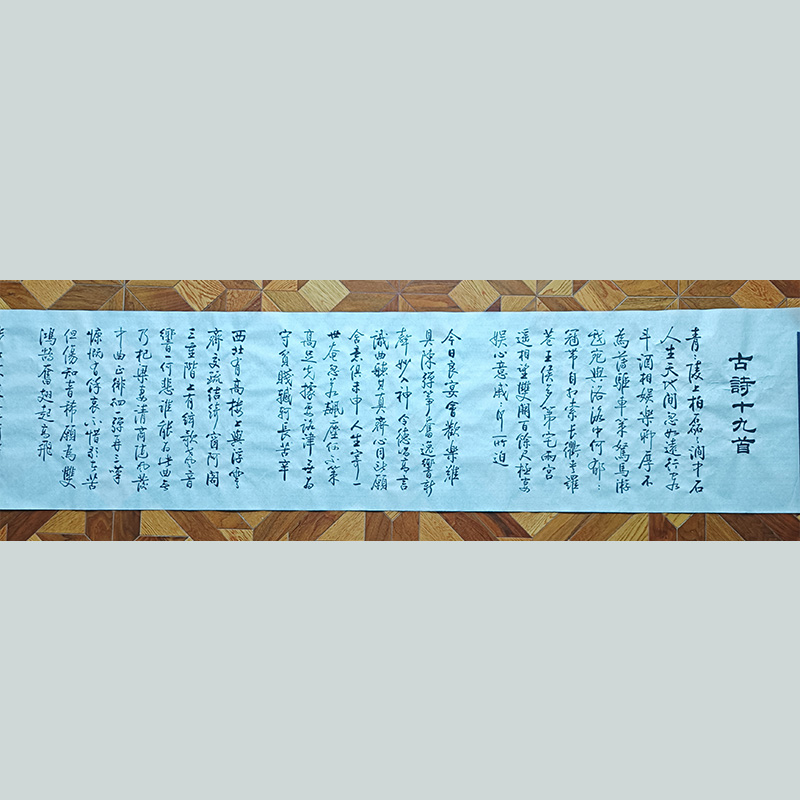 古詩十九首
青〻陵上柏磊〻澗中石
人生天地間忽如遠行客
斗酒相娛樂聊厚不
為薄驅車策駑馬游
戲宛與洛洛中何郁〻
冠帶自相索長衢夾羅
巷王侯多第宅兩宮
遙相望雙闕百餘尺極宴
娛心意戚〻何所迫
今日良宴會歡樂難
具陳彈箏奮逸響新
聲妙入神令德唱高言
識曲聽其真齊心同所願
含意俱未申人生寄一
世奄忽若飆塵何不策
高足先據要路津無為
守貧賤轗軻長苦辛
西北有高樓上與浮雲
齊交疏結綺窗阿閣
三重階上有絃歌聲音
響一何悲誰能為此曲無
乃杞梁妻清商隨風發
中曲正徘徊一彈再三嘆
慷慨有餘哀不惜歌者苦
但傷知音稀願為雙
鴻鵠奮翅起高飛